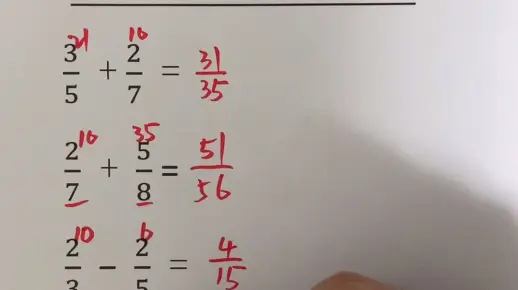 3/5 21 + 2/7 10 = 31/35
2/7 16 + 5/8 35 = 51/56
2/3 10 - 2/5 6 = 4/15